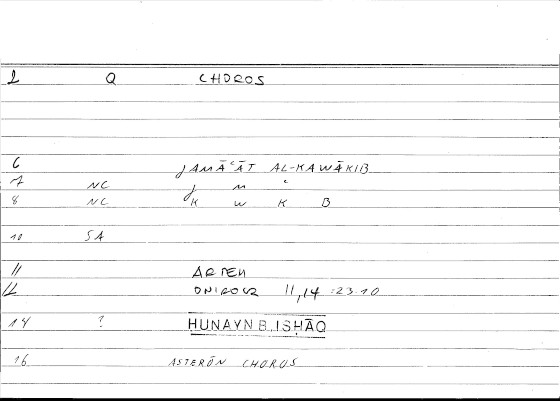 1 Q CHOROS
6 JAMĀʿĀT AL-KAWĀKIB
7 NC J M ʿ
8 NC K W K B
10 SA
11 ARTEM
12 ONIROCR 11,14 :23.10
14 ? HUNAYN B. ISḤĀQ
16 ASTERŌN CHOROS